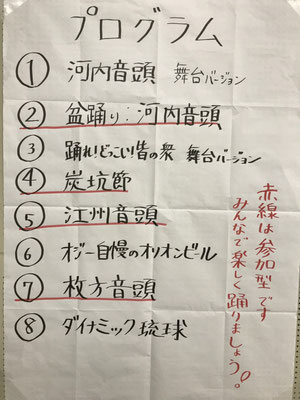 プログラム
① 河内音頭 舞台バージョン
② 盆踊り:河内音頭
③ 踊れ!どっこい!皆の衆 舞台バージョン
④ 炭坑節
⑤ 江州音頭
⑥ オジー自慢のオリオンビール
⑦ 枚方音頭
⑧ ダイナミック琉球
赤線は参加型です
みんなで楽しく踊りましょう!。